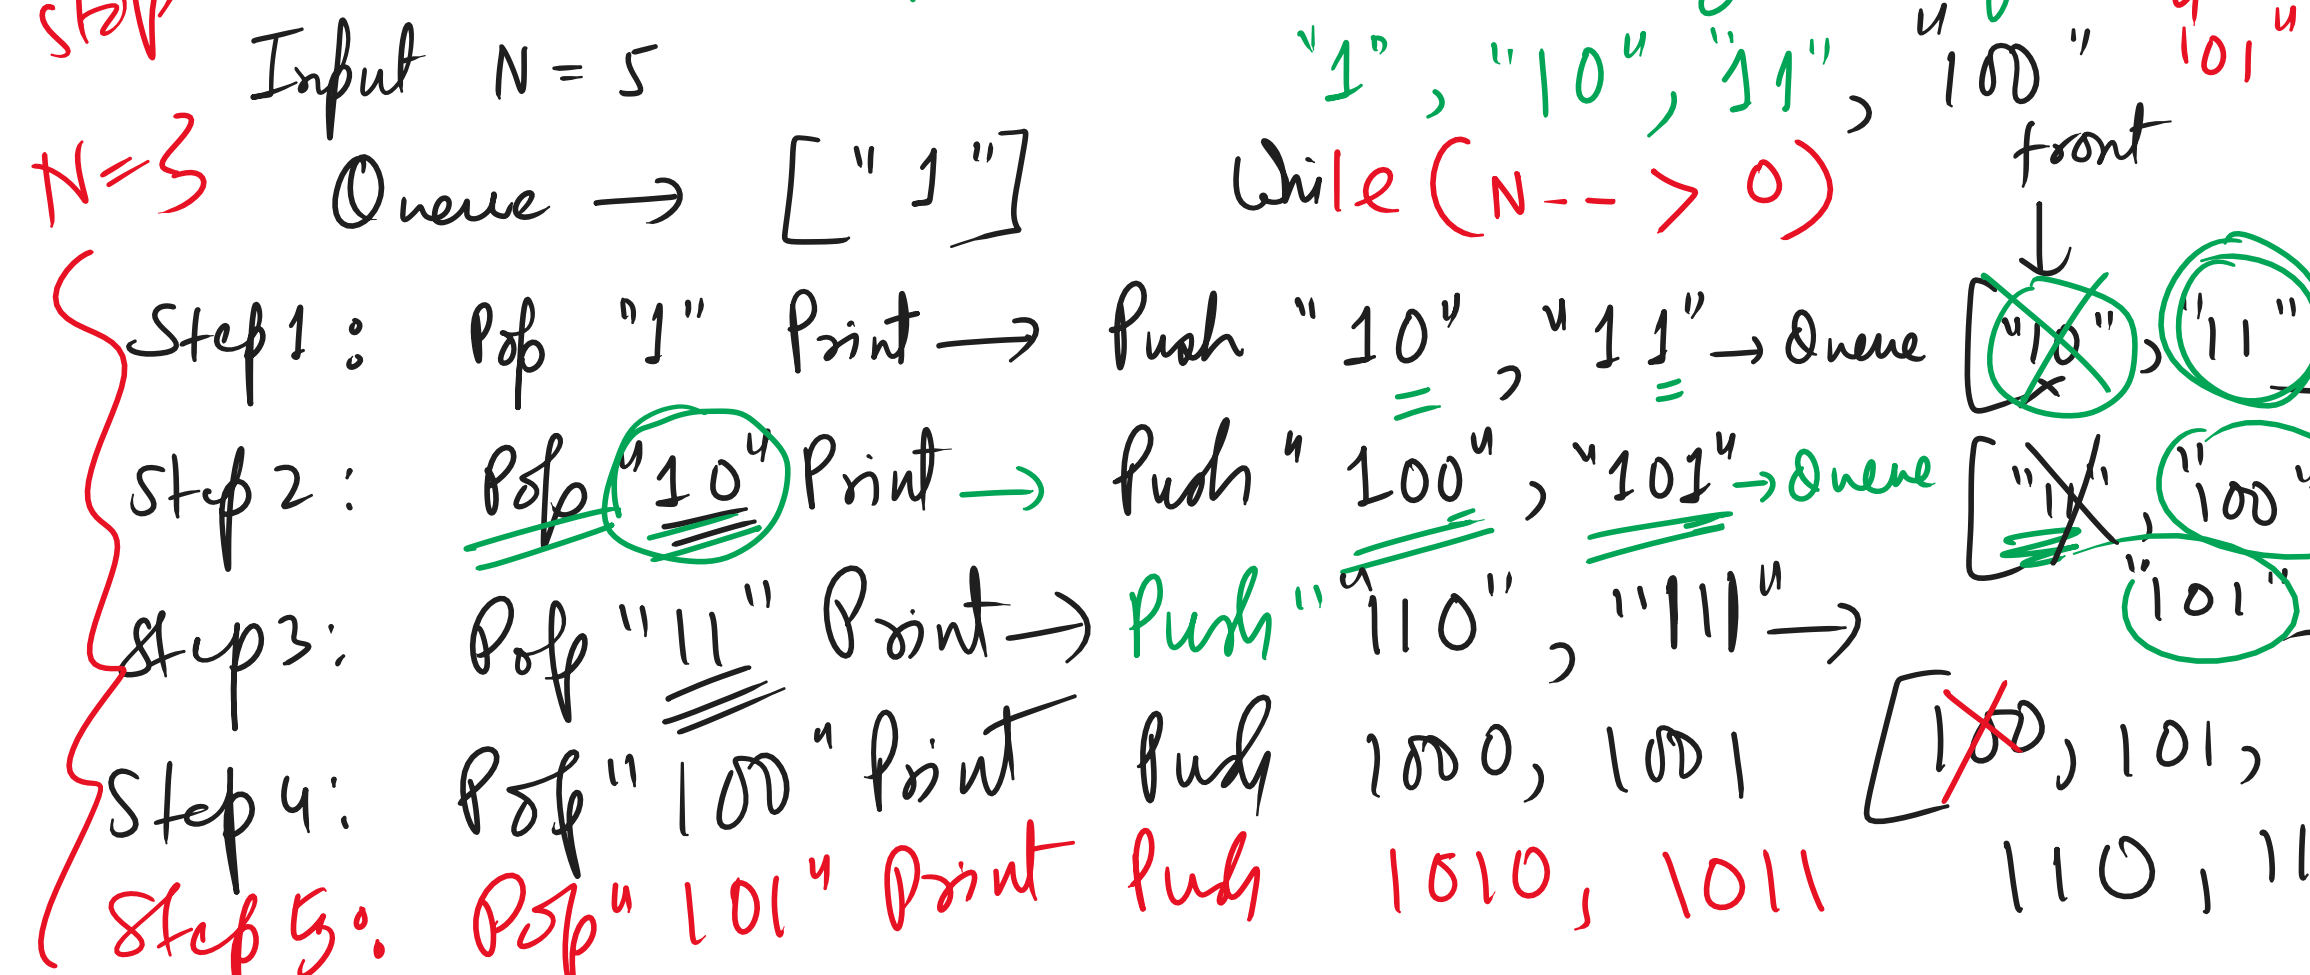 Stop
Input N = 5 "1" , "10" , "11" , "100" "101"
N=3 Queue → ["1"] While (N-- > 0) front
Step1 : Pop "1" Print → Push "10" , "11" → Queue ["10" , "11"
Step 2 : Pop "10" Print → Push "100" , "101" → Queue ["11" , "100"
"101"
Step3 : Pop "11" Print → Push "110" , "111" →
Step 4 : Pop "100" Print Push 1000, 1001 [100, 101,
110, 11
Step 5 : Pop "101" Print Push 1010, 1011